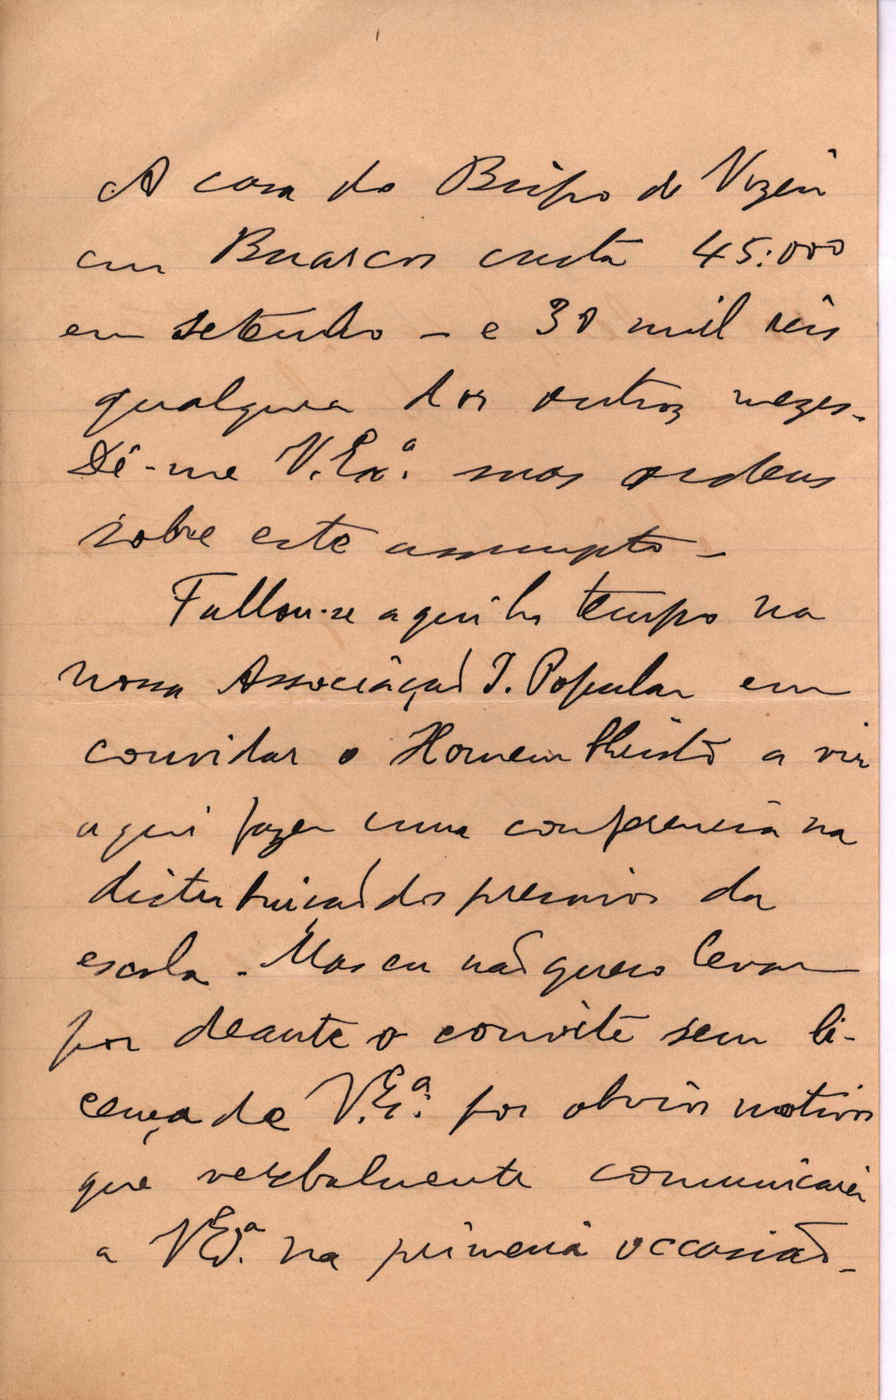 A casa do Bispo de Vizeu
em Buarcos custa 45:000
em setembro – e 30 mil reis
qualquer dos outros mezes.
Dê-me V. Exª. suas ordens
sobre este assumpto –
Fallou-se aqui ha tempo na
nossa Associação I. Popular em
convidar o Homem Christo a vir
aqui fazer uma conferencia na
distribuição dos premios da
escola. Mas eu não quero levar
por deante o convite sem li-
cença de V. Exª. por obvios motivos
que verbalmente comunicarei
a V. Exª. na primeira occasião –